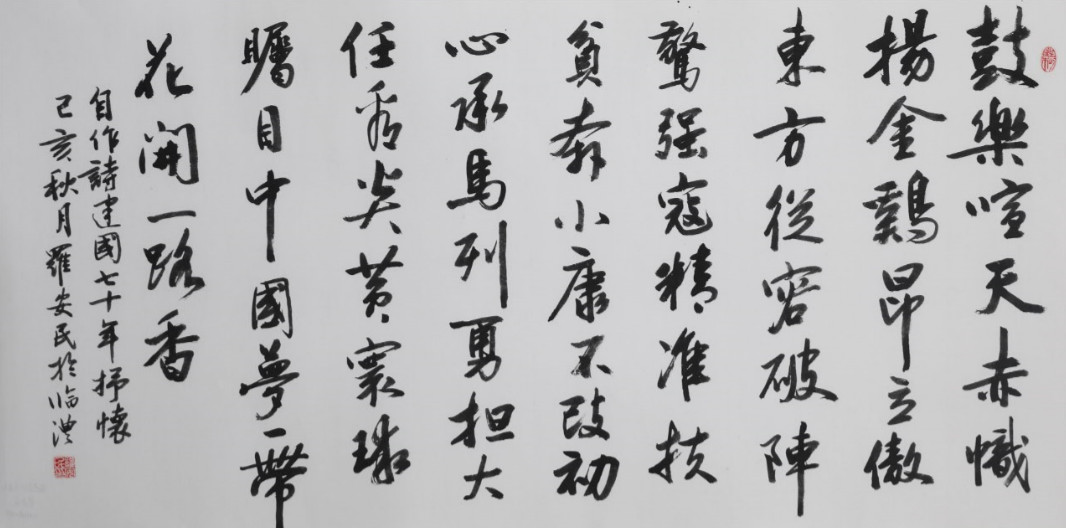 鼓樂喧天赤幟
揚金鷄昂立傲
東方從容破陣
驚强寇精准扶
貧奔小康不改初
心承馬列勇担大
任秀炎黄寰球
矚目中國夢一帶
花開一路香
自作詩建國七十年抒懷
己亥秋月羅安民於临澧